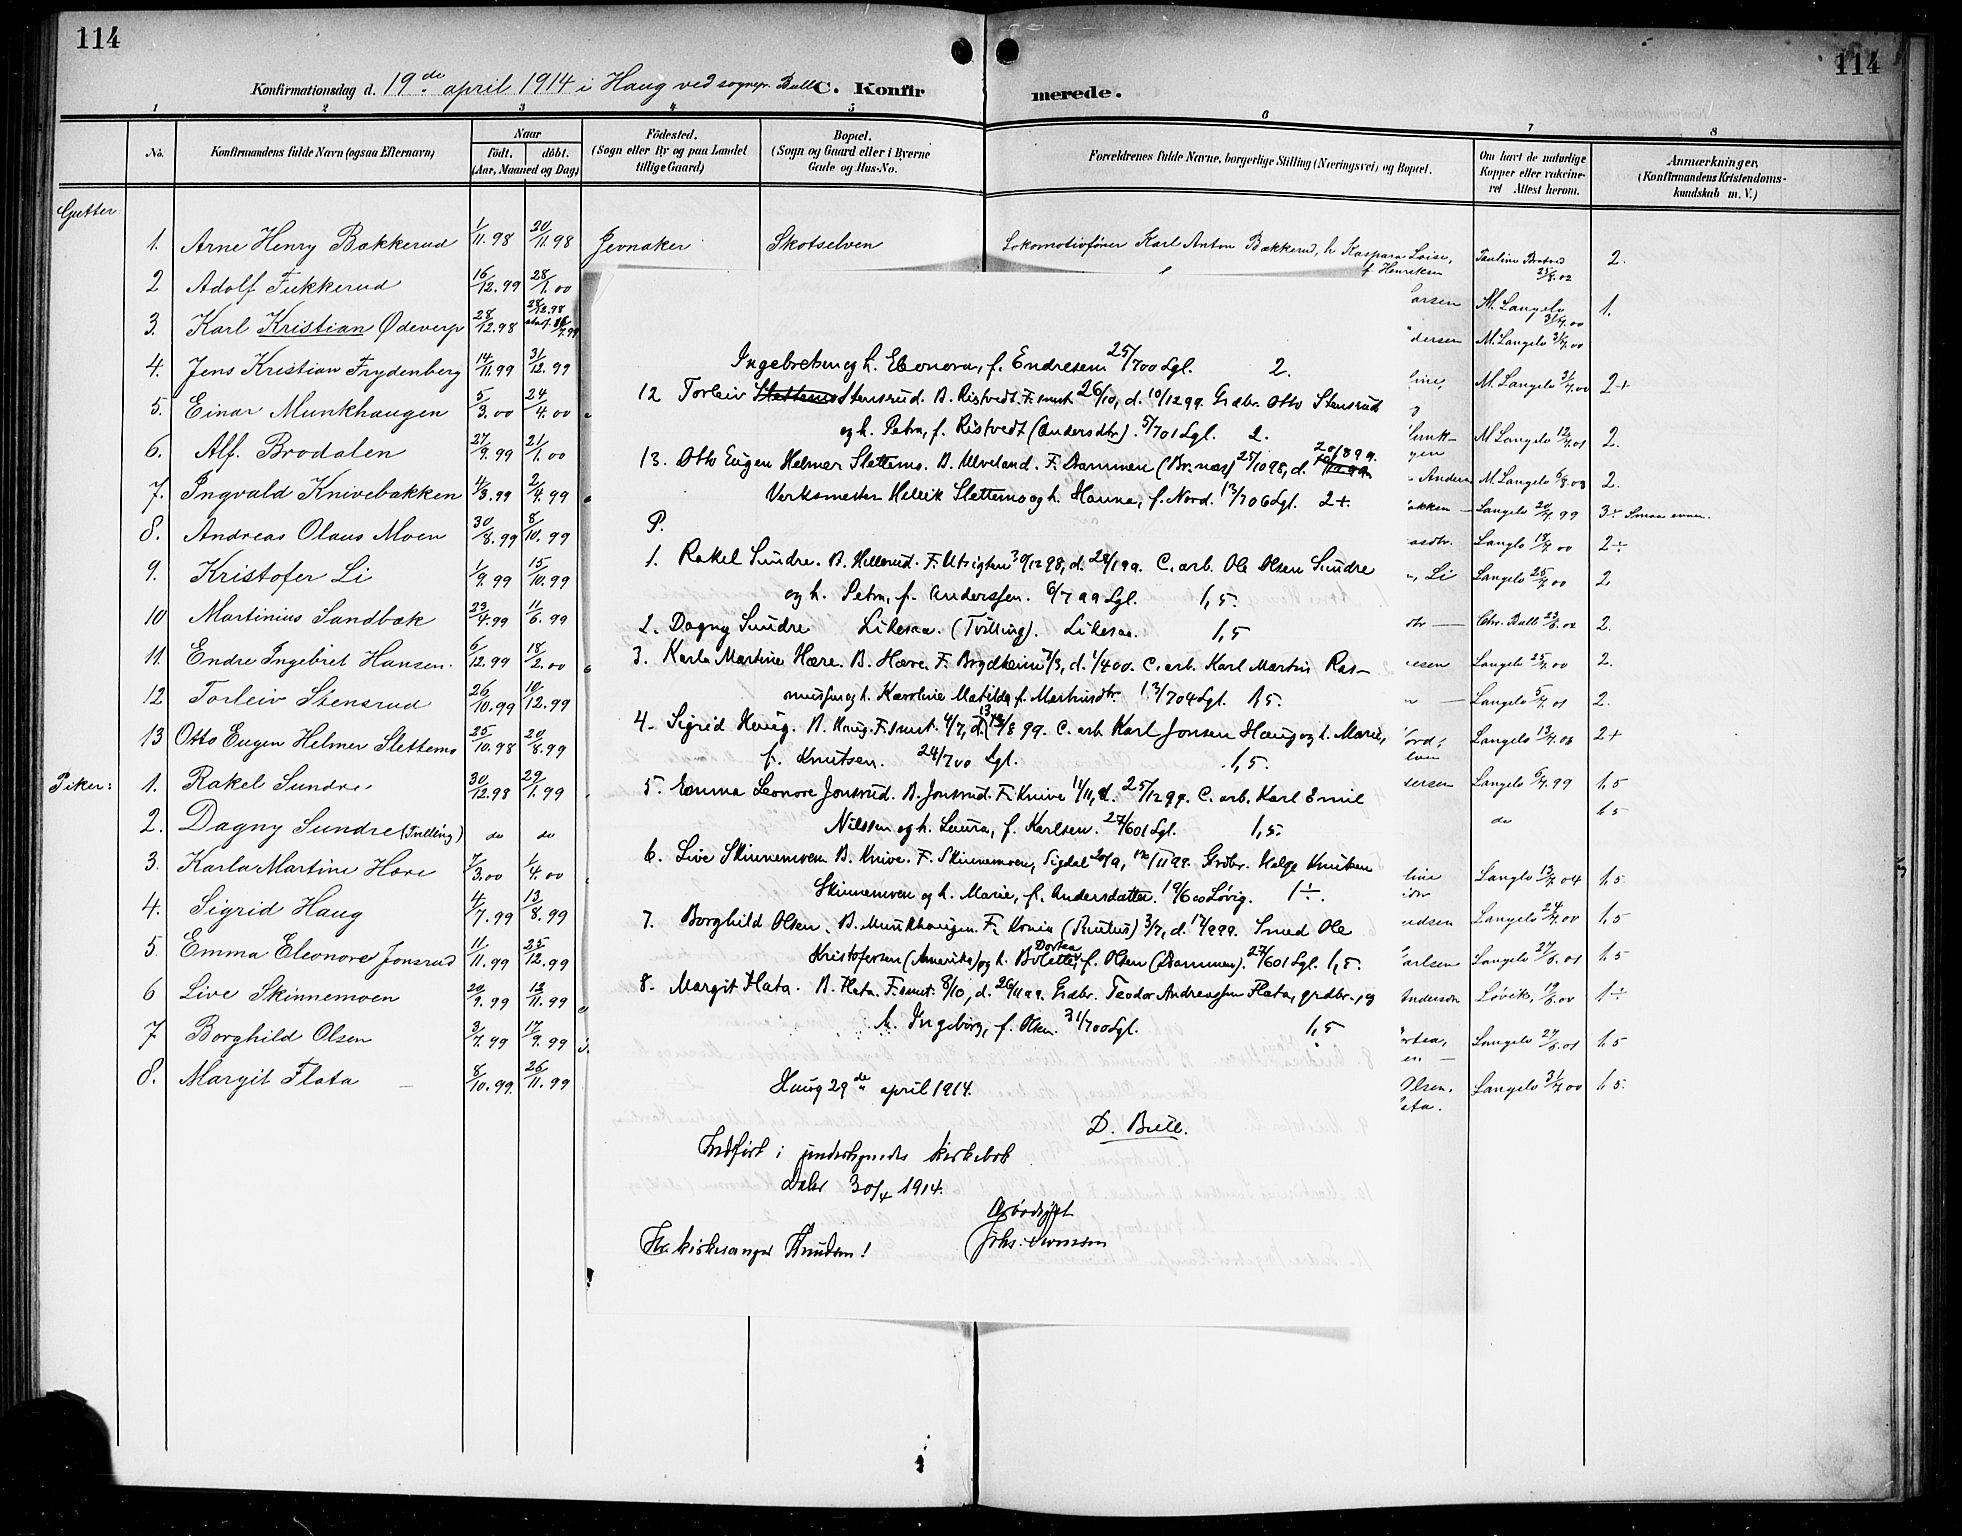 114
114
Konfirmationsdag d. 19de april 1914 i Haug ved sognepr. Bull C. Konfirmerede.
1 2 3 4 5 6 7 8
No.
Konfirmandens fulde Navn (ogsaa Efternavn)
Naar
født. døbt.
(Aar, Maaned og Dag)
Fødested.
(Sogn eller By og paa Landet
tillige Gaard)
Bopæl.
(Sogn og Gaard eller i Byerne
Gade og Hus-No.
Forældrenes fulde Navne, borgerlige Stilling (Næringsvei) og Bopæl.
Om havt de naturlige
Kopper eller vakcine-
ret Attest herom.
Anmærkninger.
(Konfirmandens Kristendoms-
kundskab m. V.)
Gutter
1. Arne Henry Bakkerud 1/11.98 20/11.98 Jevnaker Skotselven Lokomotivfører Karl Anton Bækkerud, h Kaspara Loise, f. Henriksen 2.
2 Adolf Fukkerud 16/12.99 28/1.00 Larsen M. Langelo 31/7.00 1.
3. Karl Kristian Ødeverp 28/12.98 28/12.98 dersen M. Langelo 31/7.00
4. Jens Kristian Frydenberg 14/11.99 31/12.99 line, M. Langelo 31/7.00 2+
5. Einar Munkhaugen 5/3.00 24/4.00 M Langelo 12/7.01 2.
6. Alf. Brodalen 27/9.99 21/1.00 Anders M. Langelo 6/8.03 2.
7. Ingvald Knivebakken 4/3.99 2/4.99 akken — Langelo 20/7.99 3÷ Smaa evner.
8. Andreas Olaus Moen 30/8.99 8/10.99 Langlo 18/7.00 2÷
9. Kristofer Li 1/9.99 15/10.99 Li Langelo 25/7.00 2
10 Martinius Sandbæk 23/4.99 11/6.99 Chr. Bulls 23/6.02 2.
11. Endre Ingebret Hansen. 6/12.99 18/2.00 Langelo 25/7.00 2.
12 Torleiv Stensrud 26/10.99 10/12.99 Langelo 5/7.01 2.
13 Otto Eugen Helmer Slettemo 25/10.98 20/8.99 Langelo 13/7.06 2+
Piker:
1. Rakel Sundre 30/12.98 29/1.99 dersen Langelo 6/7.99 1,5
2. Dagny Sundre (Tvilling) do do do 1,5
3. Karla Martine Hære 7/3.00 1/4.00 line Langlo 13/7.04 1,5
4. Sigrid Haug 4/7.99 13/8.99 udsen Langelo 24/7.00 1,5
5 Emma Eleonore Jonsrud 11/11.99 25/12.99 Karlsen Langelo 27/6.01 1,5
6 Live Skinnemoen 20/9.99 12/11.99 Løvik, 19/6.00 1÷
7 Borghild Olsen 3/7.99 17/9.99 Langelo 27/6.01 1,5
8. Margit Flata 8/10.99 26/11.99 Olsen. Langelo 31/7.00 1,5.
Ingebretsen og h. Elenora, f. Endresen 25/7 00 Lgl. 2.
12 Torleiv Stensrud. B. Ristvedt. F. smst. 26/10, d. 10/12 99. Grdbr. Otto Stensrud
og h. Petra, f. Ristvedt (Andersdtr). 5/7 01 Lgl. 2.
13. Otto Eugen Helmer Slettemo. B. Ulveland. F. Drammen (Br.næs) 25/10 98, d. 20/8 99.
Verksmester Helrik Slettemo og h. Hanna, f. Nord. 13/7 06 Lgl. 2+.
P.
1. Rakel Sundre. B. Hillerud. F. Utsigten 30/12 98, d. 29/1 99. C. arb. Ole Olsen Sundre
og h. Petra, f. Anderssen. 6/7 99 Lgl. 1,5.
2. Dagny Sundre Likesaa. (Tvilling). Likesaa. 1,5
3. Karla Martine Hære. B. Hære. F. Brydheim 7/3, d. 1/4 00. C. arb. Karl Martin Ras-
mussen og h. Karoline Matilde f. Martinsdtr. 13/7 04 Lgl. 1,5.
4. Sigrid Haug. B. Haug. F. smst. 4/7, d. 13/8 99. C. arb. Karl Jonsen Haug og h. Marie,
f. Knutsen. 24/7 00 Lgl. 1,5.
5. Emma Leonore Jonsrud. B. Jonsrud. F. Knive 11/11, d. 25/12 99. C. arb. Karl Emil
Nilssen og h. Laura, f. Karlsen. 27/6 01 Lgl. 1,5.
6. Live Skinnemoen B. Knive. F. Skinnemoen, Sigdal 20/9, 12/11 99. Grdbr. Helge Knutsen
Skinnemoen og h. Marie, f. Andersdatter. 19/6 00 Løvig. 1÷.
7. Borghild Olsen. B. Munkhaugen. F. Kornia 3/7, d. 17/9 99. Smed Ole
Kristofersen (Amerika) og h. Dortea f. Olsen (Drammen). 27/6 01 Lgl. 1,5.
8. Margit Flata. B. Flata. F. smst. 8/10, d. 26/11 99. Grdbr. Teodor Andreassen Flata, grdbr., og
h. Ingeborg, f. Olsen. 31/7 00 Lgl. 1,5
Haug 29de april 1914.
D. Bull.
Indført i undertegnedes kirkebok
30/4 1914.
Ærbødigst
Johs. Svensen
Hr. kirkesanger Knudsen!